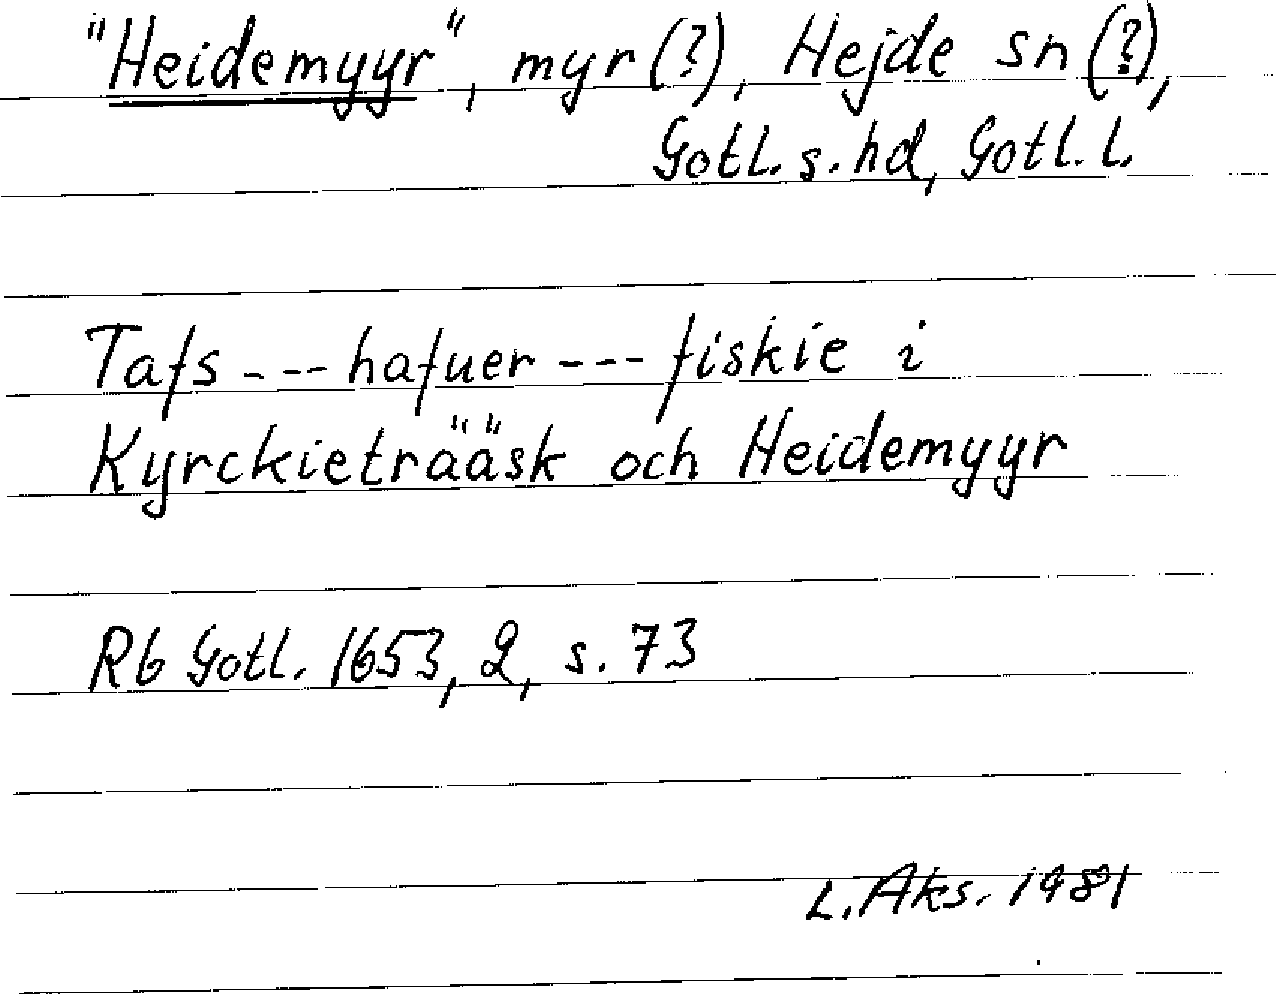 "Heidemyyr", myr (?), Hejde sn (?),
Gotl. s. hd, Gotl. l.
Tafs --- hafuer --- fiskie i
Kyrckieträäsk och Heidemyyr
Rb Gotl. 1653, 2, s. 73
L. Aks. 1981